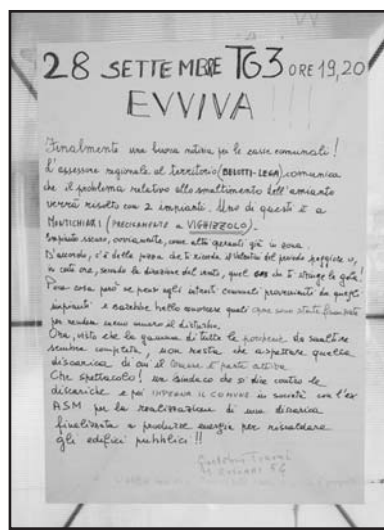 28 SETTEMBRE TG3 ORE 19,20
EVVIVA !!!
Finalmente una buona notizia per le casse comunali!
L'assessore regionale al territorio (BELOTTI-LEGA) comunica
che il problema relativo allo smaltimento dell'amianto
verrà risolto con 2 impianti. Uno di questi è a
MONTICHIARI (PRECISAMENTE A VIGHIZZOLO).
Impianto sicuro, ovviamente, come altri operanti già in zona.
D'accordo, c'è della puzza che ti ricorda il
in certe ore, secondo la direzione del vento, quel GAS che ti stringe la gola!
Poca cosa però se pensi agli introiti comunali provenienti da questi
impianti e sarebbe bello conoscere quali opere sono state finanziate
per rendere meno amaro il disturbo.
Ora, visto che la gamma di tutte le porcherie da smaltire
sembra completa, non resta che aspettare quella
discarica di cui il Comune è parte attiva
Che spettacolo! un sindaco che si dice contro le
discariche e poi IMPEGNA IL COMUNE in società con l'ex
ASM per la realizzazione di una discarica
finalizzata a produrre energia per riscaldare
gli edifici pubblici!!